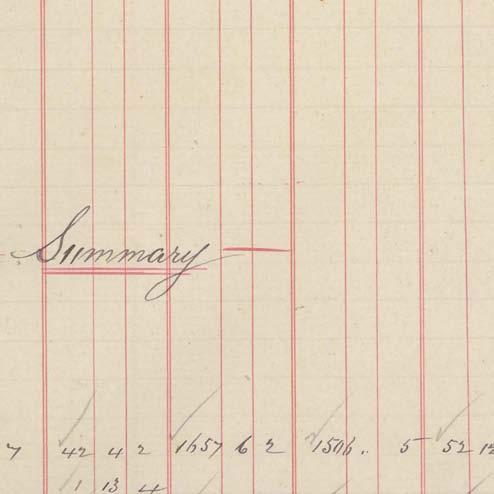 Summary
7 42 4 2 1657 6 2 1506 .. 5 52
1 13 4